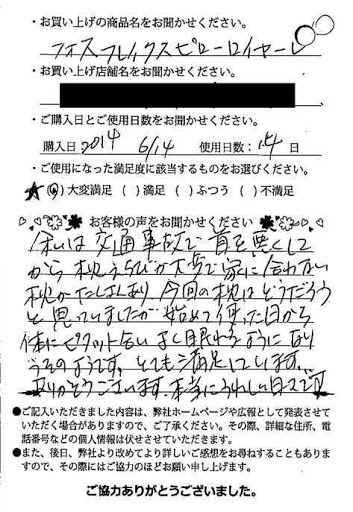 ・お買い上げの商品名をお聞かせください。
フォスフレイクスピローロイヤール
・お買い上げ店舗名をお聞かせください。
・ご購入日とご使用日数をお聞かせください。
購入日 2014 6/14 使用日数: 日
・ご使用になった満足度に該当するものをお選びください。
★(○)大変満足 ( )満足 ( )ふつう ( )不満足
お客様の声をお聞かせください
私は交通事故で首を悪くして
から枕えらびが大変で家に合わない
枕がたくさんあり今回の枕はどうだろう
と思っていましたが始めて使った日から
体にピタット合いよく眠れるようになり
うそのようです。とても満足しています。
ありがとうございます。本当にうれしい日々です
●ご記入いただきました内容は、弊社ホームページや広報として発表させて
いただく場合がありますので、ご了承ください。その際、詳細な住所、電
話番号などの個人情報は伏せさせていただきます。
●また、後日、弊社より改めてより詳しいご感想をお尋ねすることもありま
すので、その際にはご協力のほどお願い申し上げます。
ご協力ありがとうございました。